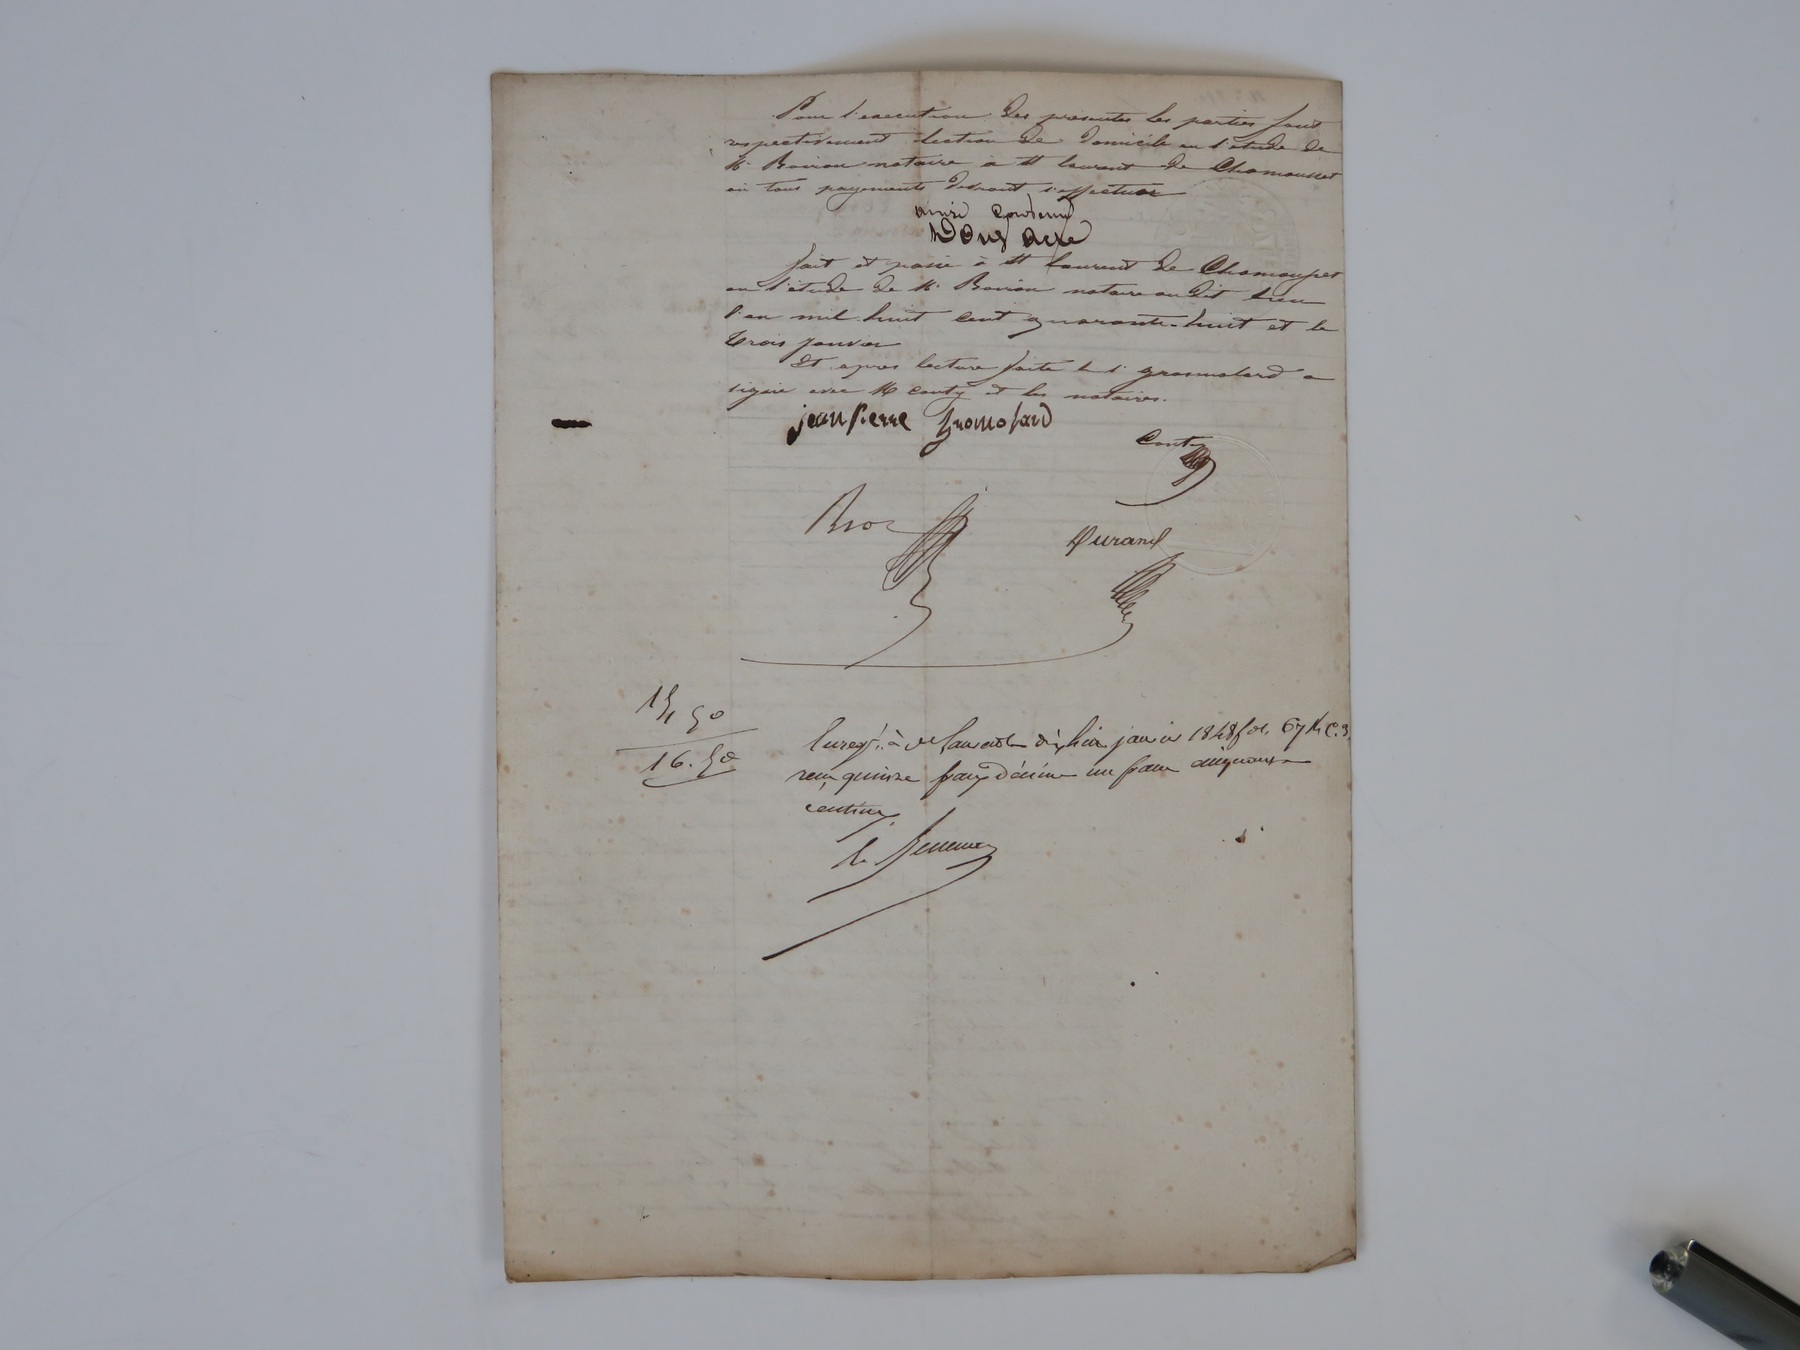 Pour l'execution des presentes les parties font
respectivement election de domicile en l'étude de
Me Boiron notaire à St Laurent de Chamousset
où tous payements devront s'effectuer
Dont Acte
fait et passé à St Laurent de Chamousset
en l'étude de Me Boiron notaire audit lieu
l'an mil huit cent quarante-huit et le
trois janvier
Et apres lecture faite le sr gromolard a
signé avec Me Conty et les notaires.
jean pierre gromolard
Conty
Durand
15, 50
16. 50
Enregé. à St Laurent dix huit janvier 1848 fol. 67 Ro C. 3.
reçu quinze francs décime un franc cinquante
centimes